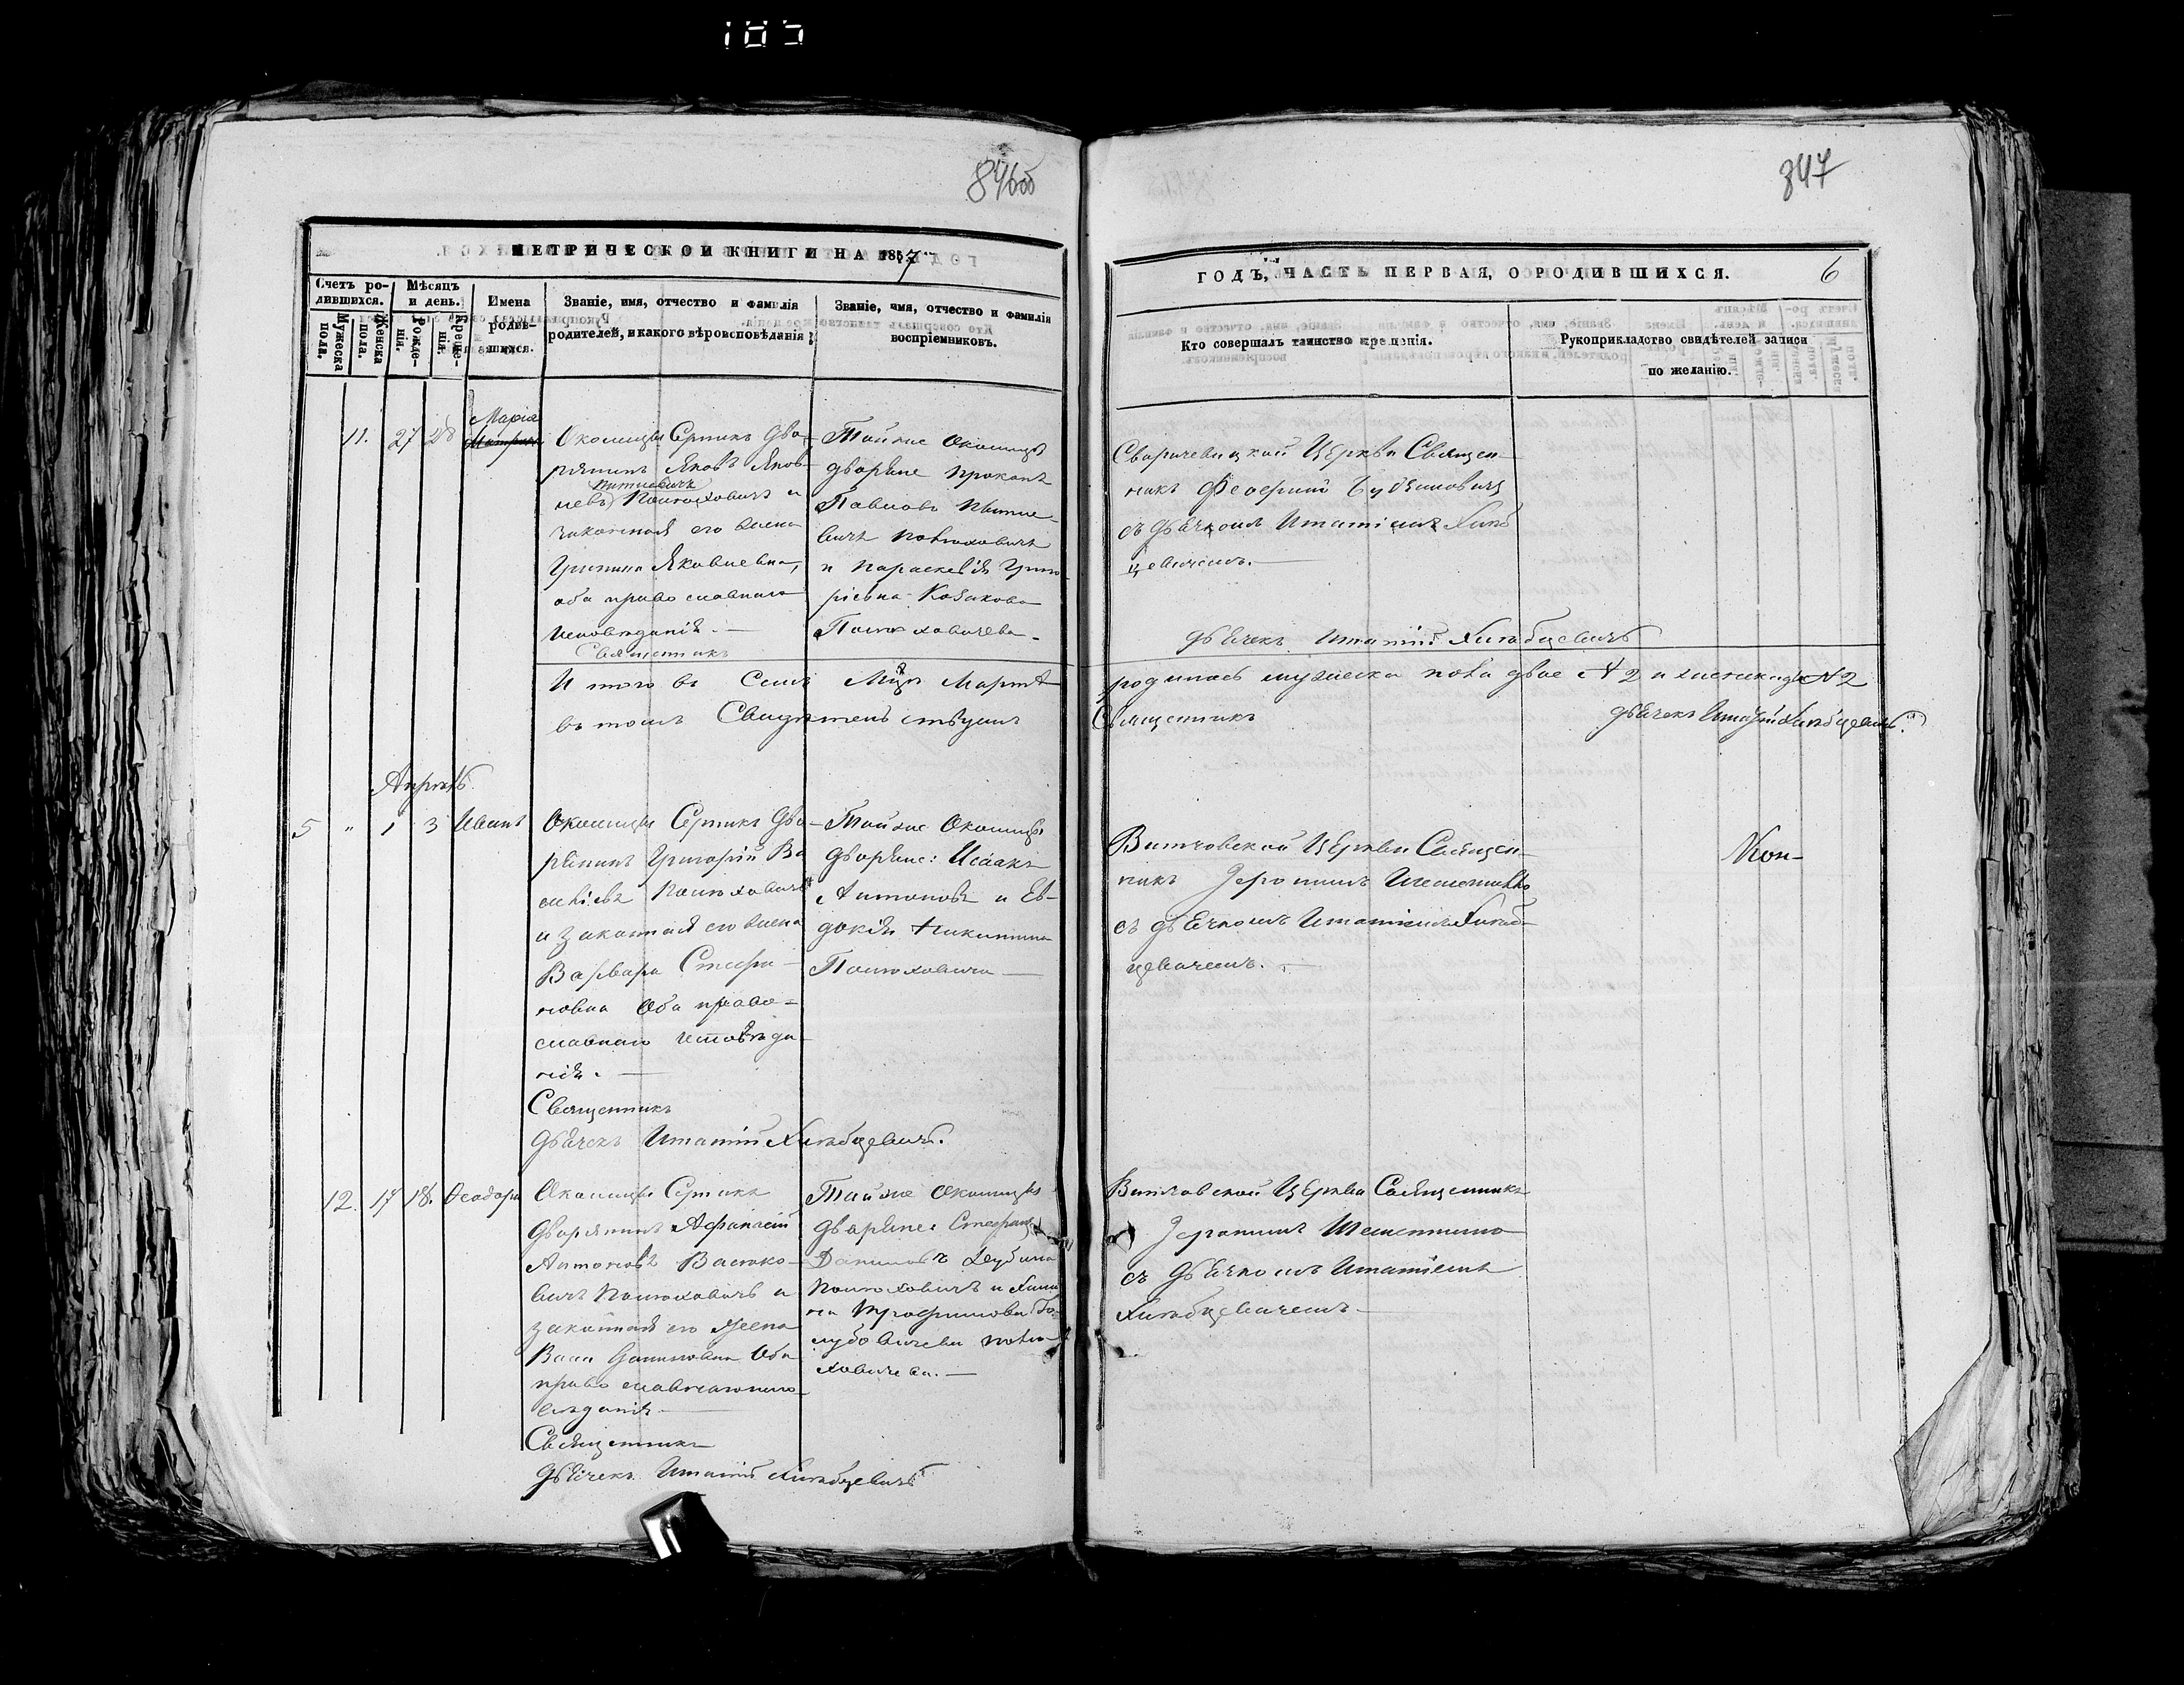 185
846об
847
МЕТРИЧЕСКОЙ КНИГИ НА 1857
ГОДЪ, ЧАСТЬ ПЕРВАЯ, О РОДИВШИХСЯ.
6
Счетъ родившихся.
Мужеска пола.
Женска пола.
Мѣсяцъ и день.
Рожденія.
Крещенія.
Имена родившихся.
Званіе, имя, отчество и фамилія
родителей, и какого вѣроисповѣданія
Званіе, имя, отчество и фамилія
воспріемниковъ.
Кто совершалъ таинство крещенія.
Рукоприкладство свидѣтелей записи
по желанію.
11. 27 28 Марія
Околицы Серники Дво-
рянинъ Яковъ Яков-
левъ Полюховичъ и
законная его жена
Яковлевна,
оба православнаго
исповѣданія.
Священникъ
Той же Околицы
дворяне
Павловъ
вичъ Полюховичъ
и Параскевія Григо-
рьевна Козакова
Полюховичева.
Сваричевицкой Церкви Священ-
никъ
съ дьячкомъ Игнатіемъ Хлѣб
цевичемъ.
Дьячекъ Игнатій Хлѣбцевичъ
Итого въ Семъ Мцѣ Мартѣ
родилось мужеска пола двое № 2 и женска № 2
въ томъ Свидѣтельствуемъ
Священникъ
дьячекъ Игнатій Хлѣбцевичъ.
Апрѣль
5 " 1 3 Иванъ
Околицы Серники Дво-
рянинъ Григорій Ва
силіевъ Полюховичъ
и законная его жена
Варвара Стефа-
новна Оба право-
славнаго исповѣда-
нія.
Священникъ
Дьячекъ Игнатій Хлѣбцевичъ.
Той же Околицы
дворяне: Исаакъ
Антоновъ и Ев-
докія Никитина
Полюховичи
Вичовской Церкви Священ-
никъ Іеронимъ
съ дьячкомъ Игнатіемъ Хлѣб-
цевичемъ.
12. 17 18. Ѳеодора
Околицы Серники
Дворянинъ Афанасій
Антоновъ Васюко-
вичъ Полюховичъ и
законная его жена
Даниловна Оба
православнаго испо-
вѣданія
Священникъ
Дьячекъ Игнатій Хлѣбцевичъ
Той же Околицы
дворяне: Стефанъ
Даниловъ
Полюховичъ и
на Трофимова Го-
лубовичева Полю-
ховичева.
Вичовской Церкви Священникъ
Іеронимъ
съ Дьячкомъ Игнатіемъ
Хлѣбцевичемъ